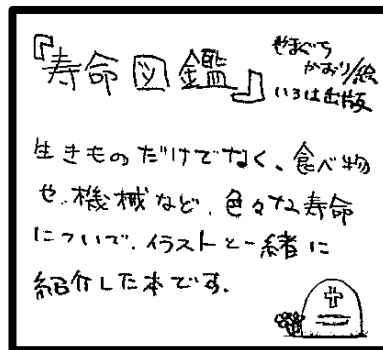 『寿命図鑑』
やまぐち
かおり/絵
いろは出版
生きものだけでなく、食べ物
や、機械など、色々な寿命
について、イラストと一緒に
紹介した本です。